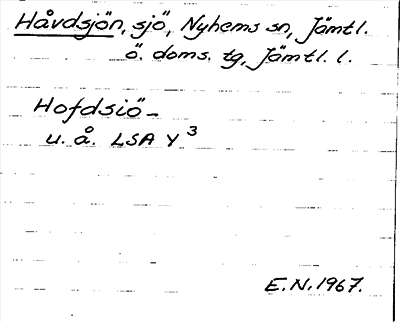 Håvdsjön, sjö, Nyhems sn, Jämtl.
ö. doms. tg, Jämtl. l.
Hofdsiö-
u. å. LSA Y 3
E.N. 1967.